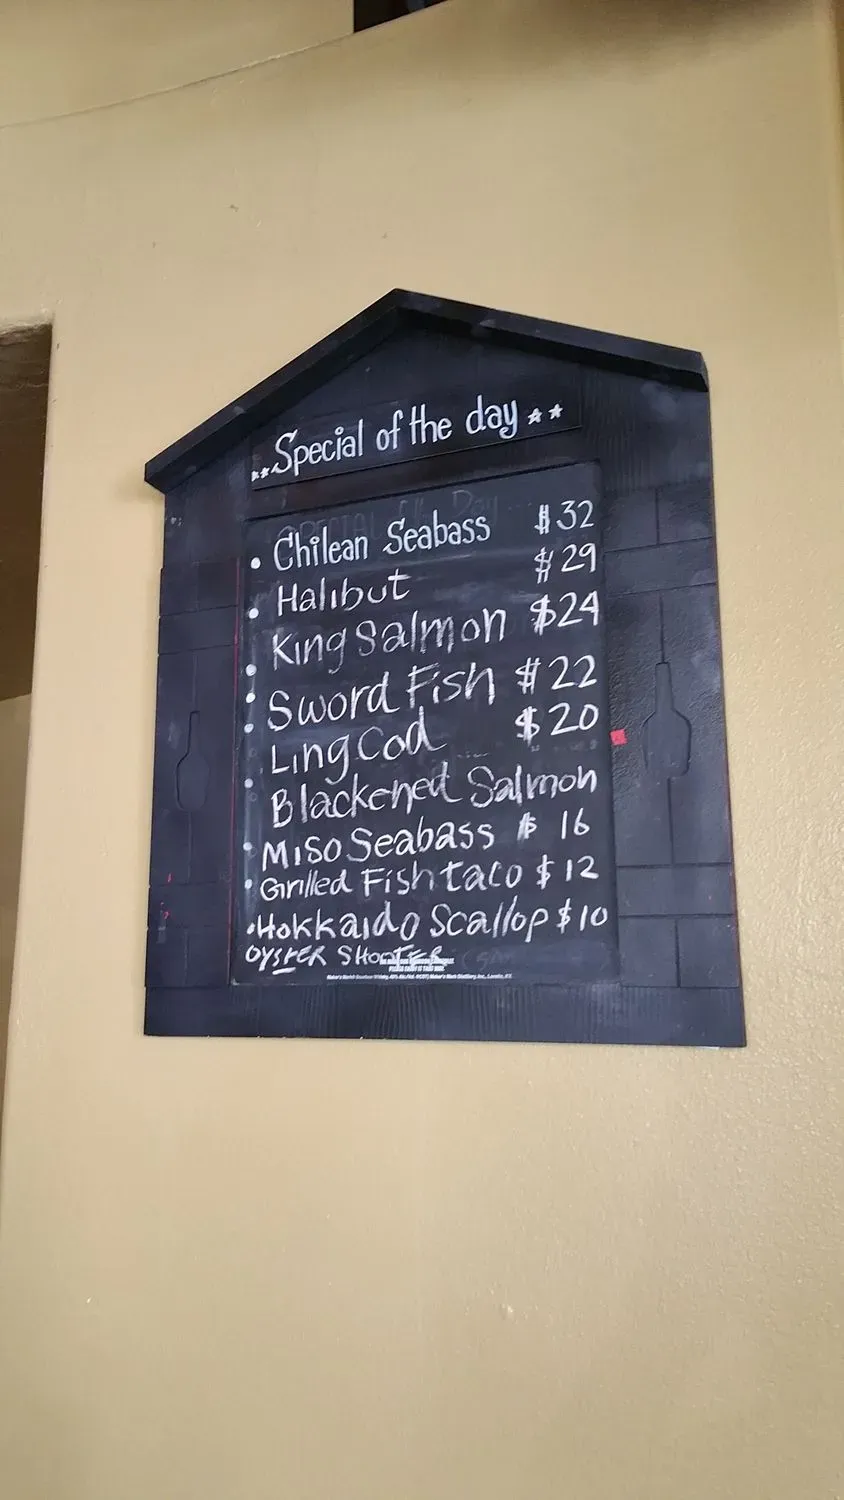 **Special of the day**
• Chilean Seabass $32
• Halibut $29
• King Salmon $24
• Sword Fish $22
• Ling Cod $20
• Blackened Salmon
• Miso Seabass $16
• Grilled Fish taco $12
• Hokkaido Scallop $10
OYSTER SHOOTER